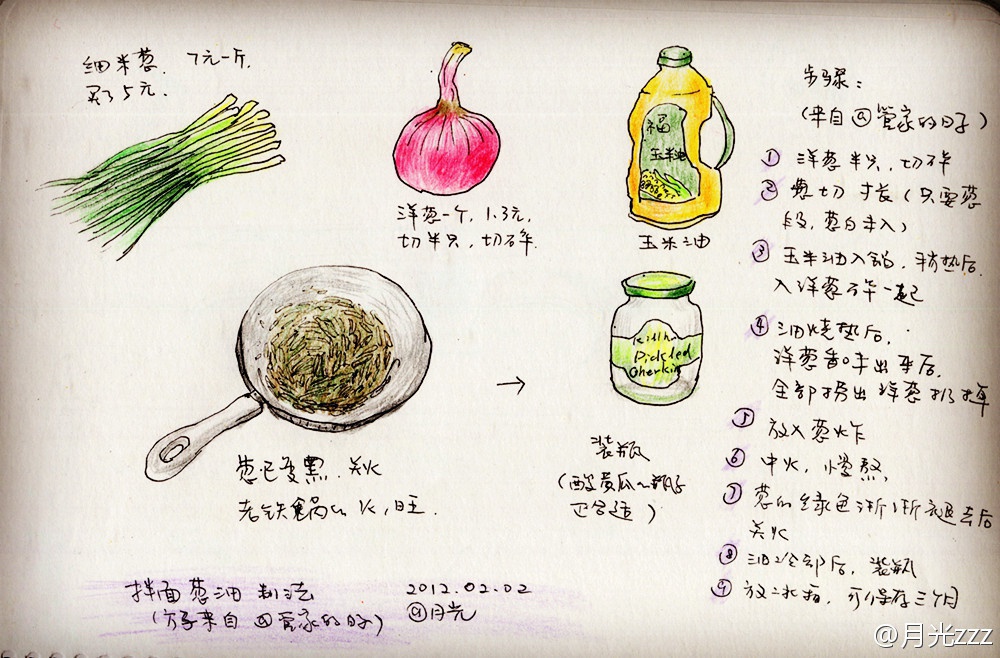 细米葱. 7元一斤.
买了5元.
洋葱一个, 1.3元,
切半只, 切碎.
福
玉米油
玉米油
Pickled
Gherkin
葱已变黑. 关火
老铁锅 火, 旺.
装瓶
(酸黄瓜的瓶子
正合适)
步骤:
(来自@管家的日子)
① 洋葱半只, 切碎
② 葱切寸长(只要葱
段, 葱白未入)
③ 玉米油入锅, 稍热后.
入洋葱碎一起
④ 油烧热后,
洋葱香味出来后,
全部捞出洋葱扔掉
⑤ 放入葱炸
⑥ 中火, 慢熬,
⑦ 葱的绿色渐渐褪去后
关火
⑧ 油冷却后, 装瓶
⑨ 放冰箱, 可保存三个月
拌面葱油制法
(方子来自@管家的日子)
2012.02.02
@月光
@月光zzz